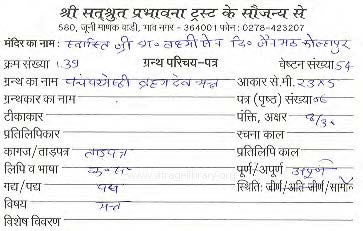 श्री सत्श्रुत प्रभावना ट्रस्ट के सौजन्य से
580, जूनी माणेक वाडी, भाव नगर - 364001 फोन : 0278-423207
मंदिर का नाम : स्वस्ति श्री भ. लक्ष्मीसेन दि. जैन मठ कोल्हापुर
क्रम संख्या 39 ग्रन्थ परिचय-पत्र वेष्टन संख्या 54
ग्रन्थ का नाम पंचपरमेष्ठी आकार से.मी. 23x5
ग्रन्थकार का नाम पत्र (पृष्ठ) संख्या
टीकाकार पंक्ति, अक्षर
प्रतिलिपिकार रचना काल
कागज/ताड़पत्र ताडपत्र प्रतिलिपि काल
लिपि व भाषा पूर्ण/अपूर्ण अपूर्ण
गद्य/पद्य पद्य स्थिति: जीर्ण/अति जीर्ण/सामान्य
विषय
विशेष विवरण